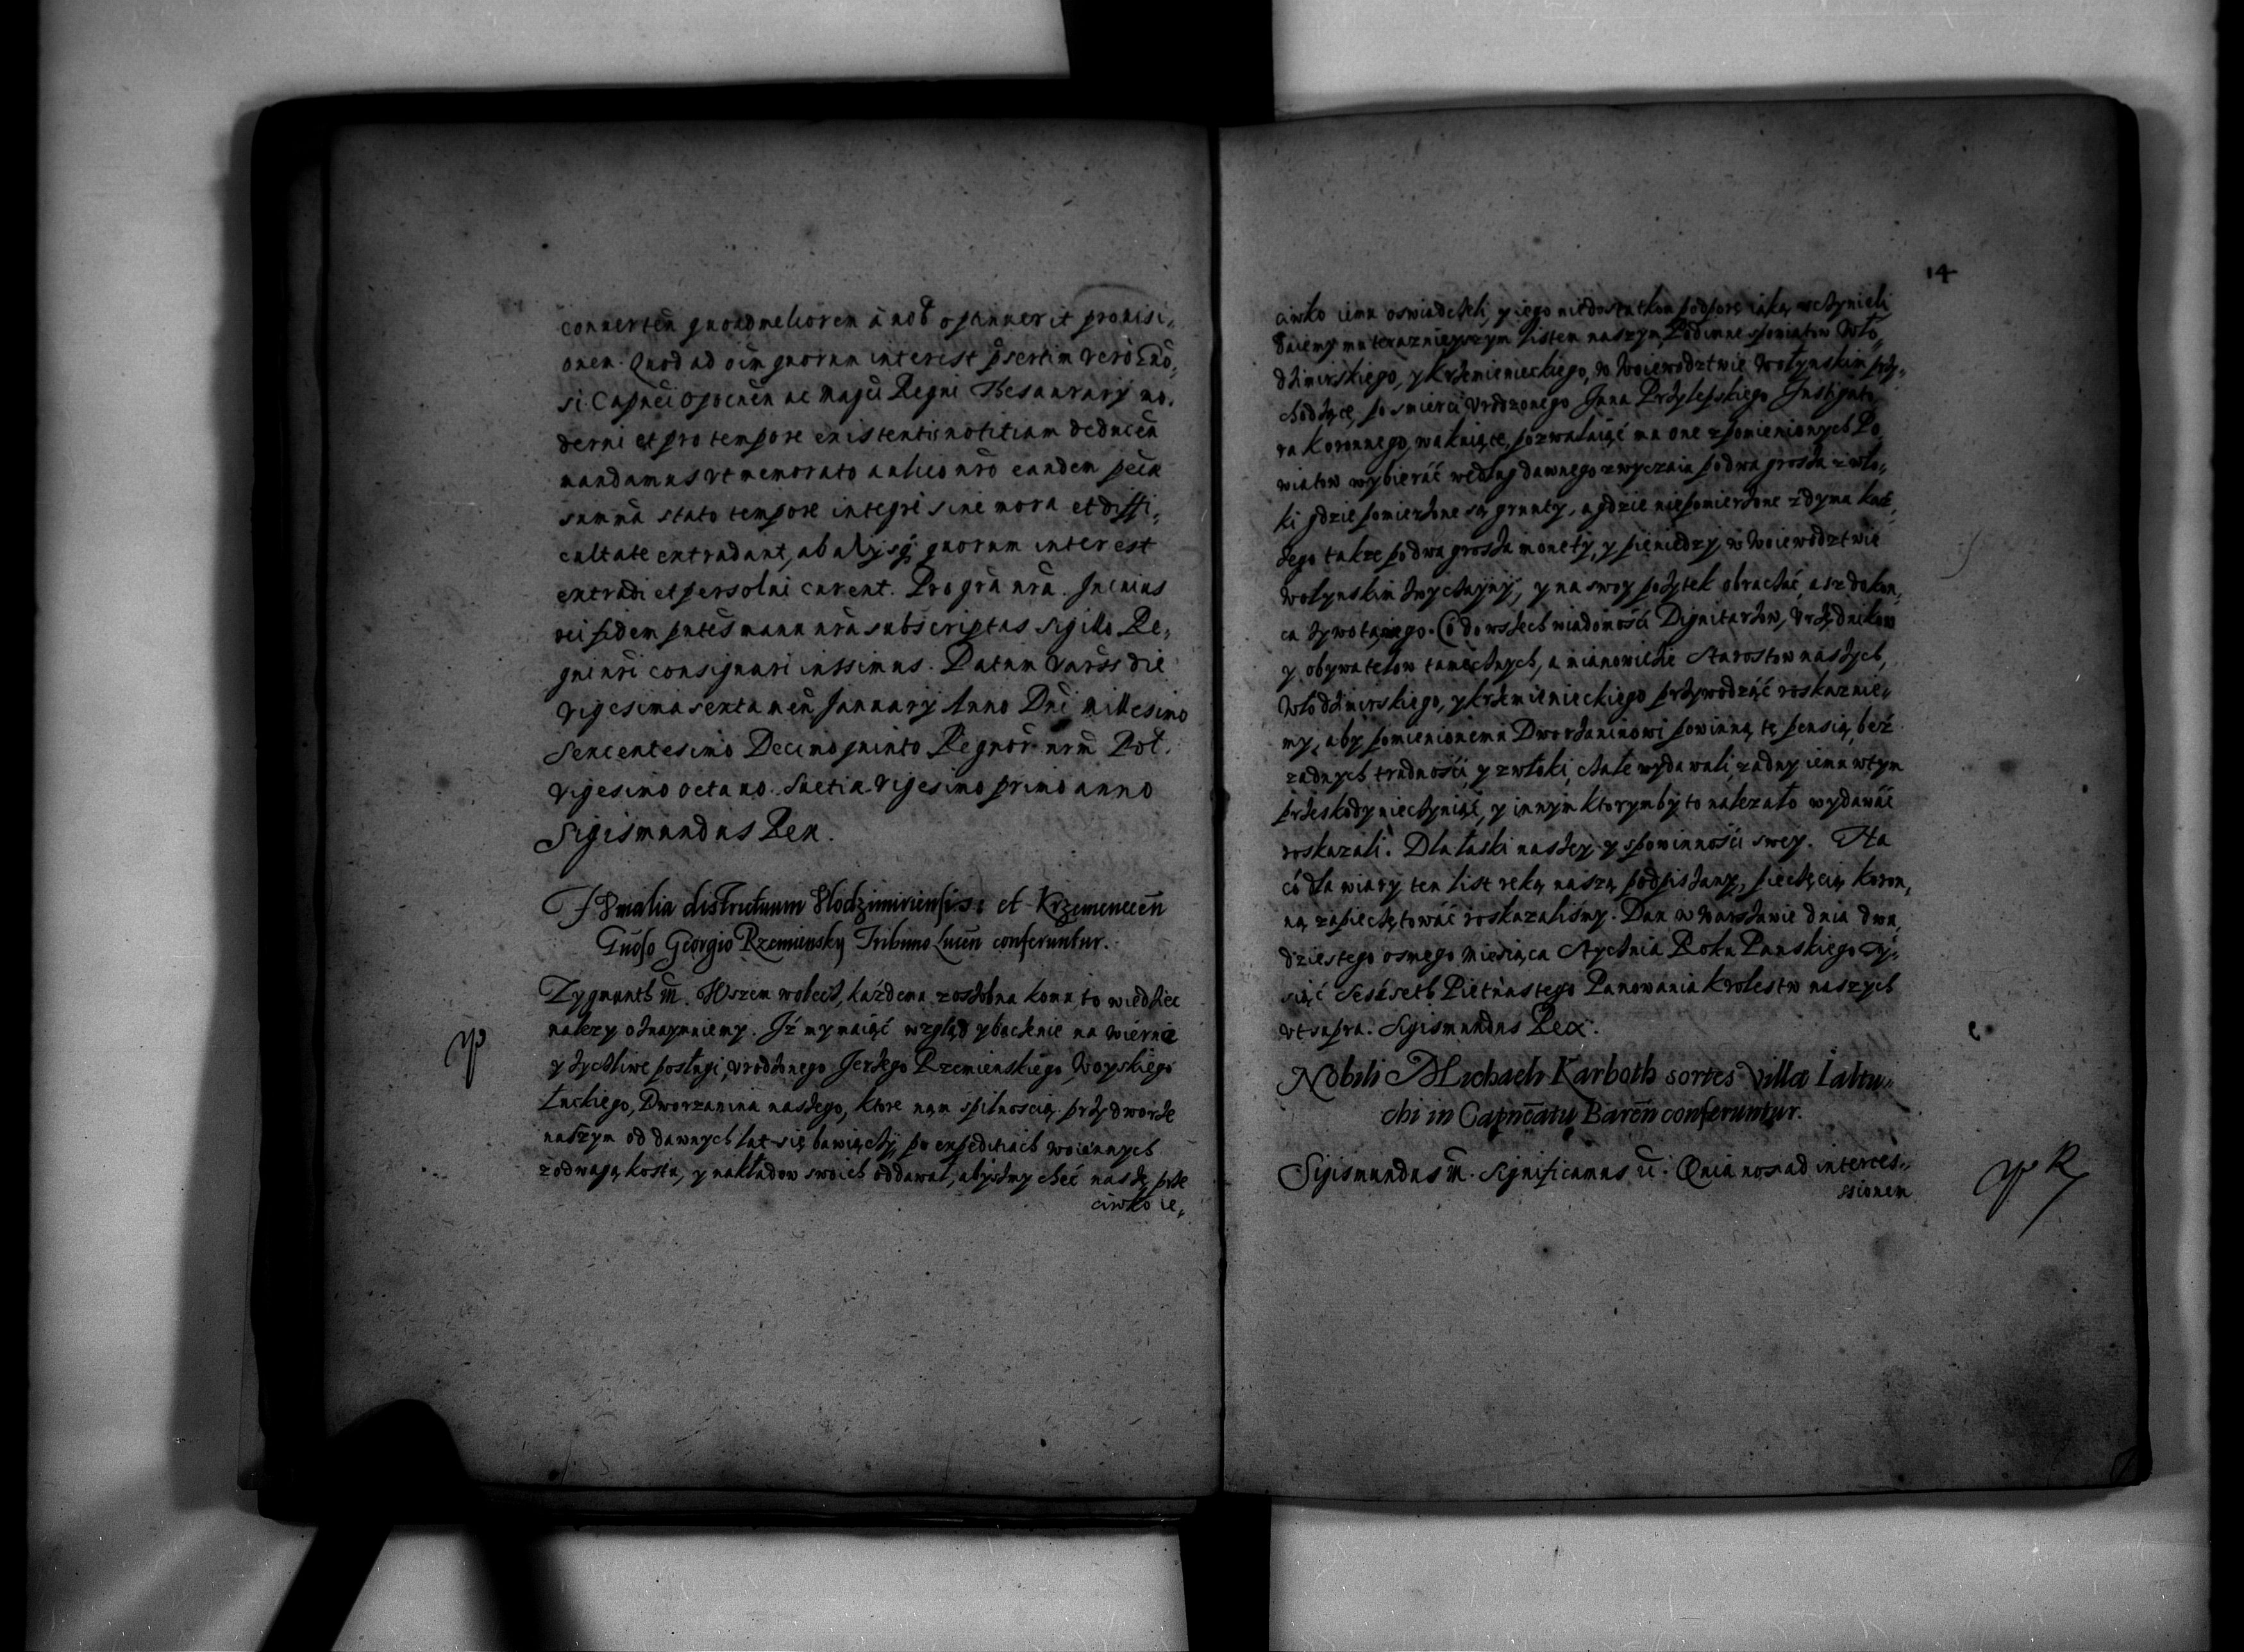 conuerteñ quoadmeliorem à nob optinuerit prouisi„
onem. Quod ad oim̃ quorum interest p̃sertim verò Gno„
si Capnei Opocneñ ac Magci Regni Thesaurarÿ mo„
derni et pro tempore existentis notitiam deduceñ
mandamus vt memorato aulico nr̃o eandem pecũ
summã stato tempore integrè sine mora et diffi„
cultate extradant, ab alÿsq; quorum interest
extradi et persolui curent. Pro grã nrã. In cuius
rei fidem pñtes manu nrã subscriptas Sigillo Re„
gni nr̃i consignari iussimus. Datum Varss die
vigesima sexta men̄ Januarÿ Anno Dni Millesimo
Sexcentesimo Decimo quinto Regnor̃ nrm̃ Pol.
vigesimo octauo. Suetiæ vigesimo primo anno
Sigismundus Rex.
Fumalia districtuum Wlodzimiriensis et Krzemeneceñ
Gnõso Georgio Rzemiensky Tribuno Luceñ conferuntur.
Zygmunth m̃. Wszem wobecz, każdemu zosobna komu to wiedziec
nalezy oznaymuiemy. Iż my maiąć wzgląd y baczenie na wierne
y życzliwe posługi, vrodzonego Jerzego Rzemienskiego Woyskiego
Łuckiego, Dworzanina naszego, ktore nąm spilnoscią przy dworze
naszym od dawnych lat się bawiączy, po expeditiach woiennych
z odwagą kosztu, y nakładow swoich oddawał, abysmy chęć naszę prze
ciwko ie„
14
ciwko iemu oswiadczeli, y iego niedostatkom podporę iaką uczynieli
Daiemy mu terazniejszym listem naszym Podimne spowiatow Wło„
dzimirskiego, y Krzemienieckiego, w Woiewodztwie Wołynskim przy„
chodzące, po smierci Vrodzonego Jana Przylepskiego Instigato„
ra Koronnego, wakuiące, pozwalaiąć mu one z pomienionych Po„
wiatow wybierać według dawnego zwyczaiu po dwa grosza z wło„
ki gdzie pomierzone są grunty, a gdzie niepomierzone z dymu każ„
dego takze po dwa grosza monety, y pieniedzy, w Woiewodztwie
Wołynskim zwyczayny, y na swoy pożytek obraczać, asz do kon„
ca zywota iego. Co do wszech wiadomości Dignitarzow, Vrzędnikow
y obywatelow tamecznych, a mianowicie Starostow naszych,
Włodzimirskiego, y Krzemienieckiego przywodząć roskazuie„
my, aby pomienionemu Dworzaninowi powinną tę pensią, beż
zadnych trudności, y zwłoki, czale wydawali, zadny iemu wtym
przeskody nieczyniąć, y innym ktorym by to nalezało wydawać
roskazali. Dla łaski naszey y spowinności swey. Na
co dla wiary ten list ręką naszą podpiszany, pieczęcią Koron„
ną zapieczętować roskazaliśmy. Dan w Warszawie dnia dwu„
dziestego osmego Miesiąca Stycznia Roku Panskiego Ty„
siąć Sesćseth Pietnastego Panowania Krolestw naszych
vt supra. Sigismundus Rex.
Nobili Michaeli Karboth sortes villæ Ialtu„
chi in Capnẽatu Bareñ conferuntur.
Sigismundus m̃. Significamus &c̃. Quia nos ad interces„
ssionem